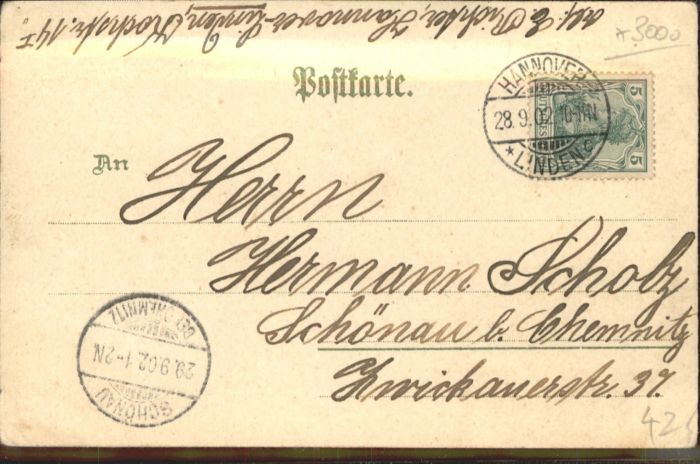 Abs. E. Richter, Hannover-Linden, Kochstr. 14 I
* 3000
Postkarte.
HANNOVER
28.9.02. 10-11N
* LINDEN c
5
5
An
Herrn
Hermann Scholz
Schönau b. Chemnitz
Zwickauerstr. 37.
SCHÖNAU
29.9.02. 1-2N
(BZ. CHEMNITZ)
42